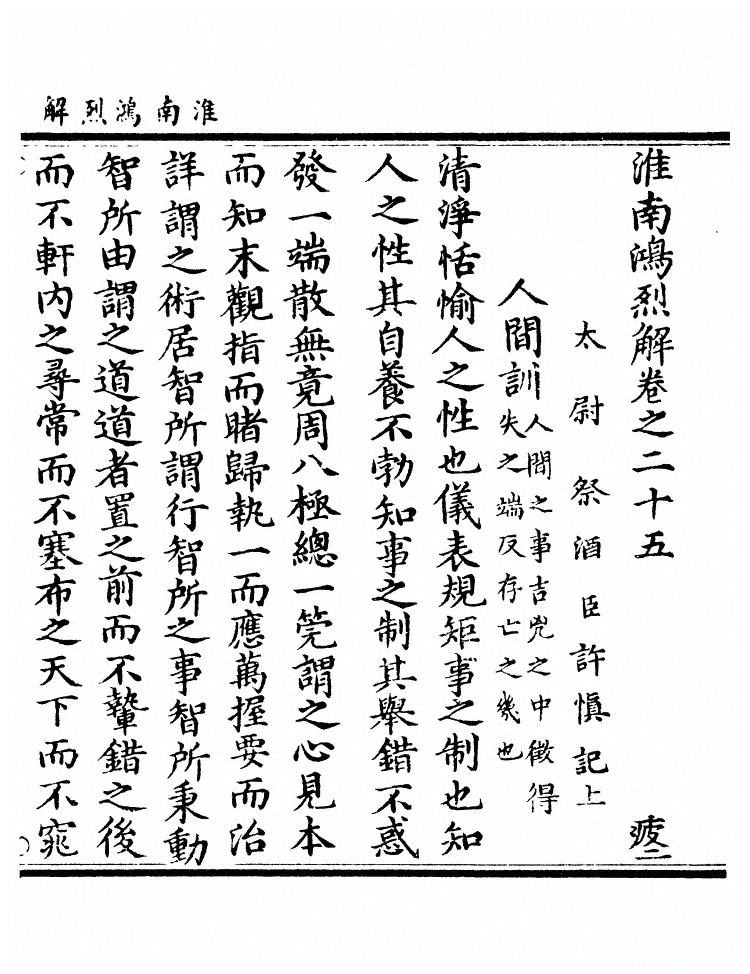 淮南鴻烈解
淮南鴻烈解卷之二十五 疲二
太尉祭酒臣許慎記上
人間訓 人間之事吉凶之中徵得
失之端反存亡之幾也
清淨恬愉人之性也儀表規矩事之制也知
人之性其自養不勃知事之制其舉錯不惑
發一端散無竟周八極總一筦謂之心見本
而知末觀指而睹歸執一而應萬握要而治
詳謂之術居智所謂行智所之事智所秉動
智所由謂之道道者置之前而不蟄錯之後
而不軒內之尋常而不塞布之天下而不窕